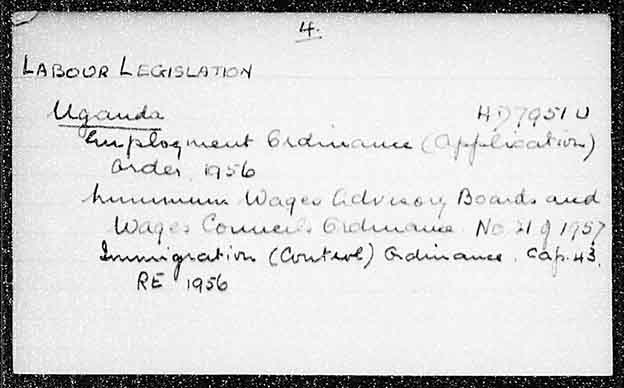 4.
LABOUR LEGISLATION
Uganda HD7951 U
Employment Ordinance (Application)
Order, 1956
Minimum Wages Advisory Boards and
Wages Councils Ordinance. No. 21 of 1957
Immigration (Control) Ordinance. Cap. 43.
RE 1956